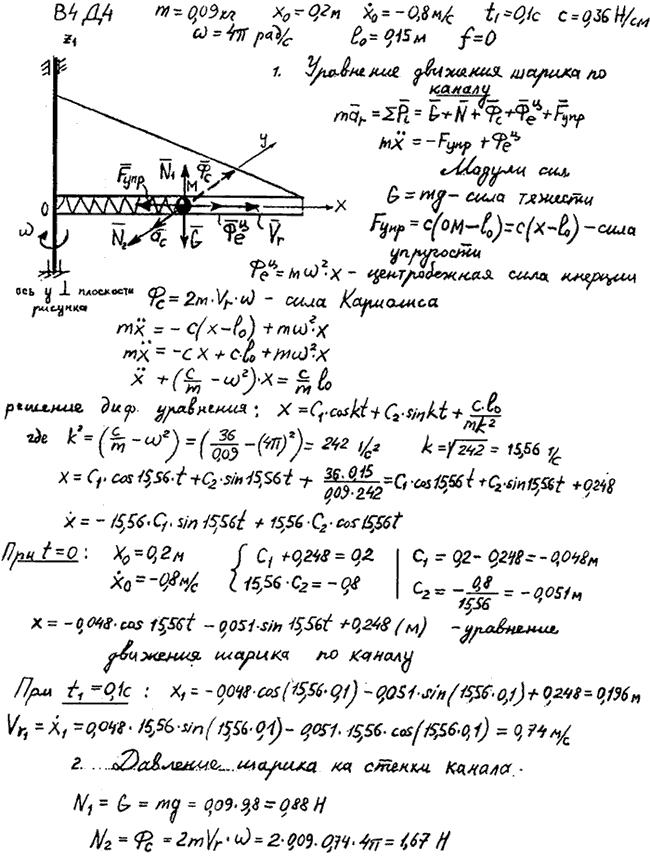 В4 Д4   m = 0,09 кг   x₀ = 0,2 м   ẋ₀ = −0,8 м/с   t₁ = 0,1 с   c = 0,36 Н/см
ω = 4π рад/с   l₀ = 0,15 м   f = 0
z₁
1. Уравнение движения шарика по
каналу
mā_r = ΣP̄ᵢ = Ḡ + N̄ + Φ̄_c + Φ̄_e^ц + F̄упр
mẍ = −Fупр + Φ_e^ц
Модули сил
G = mg – сила тяжести
Fупр = c(OM − l₀) = c(x − l₀) – сила
упругости
y
F̄упр N̄₁ Φ̄_c
M
O x
ω N̄₂ ā_c Ḡ Φ̄_e^ц V̄_r
Φ_e^ц = mω²·x – центробежная сила инерции
ось y ⊥ плоскости
рисунка
Φ_c = 2m·V_r·ω – сила Кариолиса
mẍ = −c(x − l₀) + mω²·x
mẍ = −cx + c·l₀ + mω²·x
ẍ + (c/m − ω²)·x = c/m l₀
решение диф. уравнения: x = C₁·cos kt + C₂·sin kt + c·l₀/mk²
где k² = (c/m − ω²) = (36/0,09 − (4π)²) = 242 1/с²   k = √242 = 15,56 1/с
x = C₁·cos 15,56·t + C₂·sin 15,56t + 36·0,15/0,09·242 = C₁·cos 15,56t + C₂·sin 15,56t + 0,248
ẋ = −15,56·C₁·sin 15,56t + 15,56·C₂·cos 15,56t
При t = 0: x₀ = 0,2 м   { C₁ + 0,248 = 0,2   | C₁ = 0,2 − 0,248 = −0,048 м
ẋ₀ = −0,8 м/с   { 15,56·C₂ = −0,8   | C₂ = −0,8/15,56 = −0,051 м
x = −0,048·cos 15,56t − 0,051·sin 15,56t + 0,248 (м) – уравнение
движения шарика по каналу
При t₁ = 0,1с: x₁ = −0,048·cos(15,56·0,1) − 0,051·sin(15,56·0,1) + 0,248 = 0,196 м
V_r₁ = ẋ₁ = 0,048·15,56·sin(15,56·0,1) − 0,051·15,56·cos(15,56·0,1) = 0,74 м/с
2. Давление шарика на стенки канала.
N₁ = G = mg = 0,09·9,8 = 0,88 Н
N₂ = Φ_c = 2mV_r·ω = 2·0,09·0,74·4π = 1,67 Н